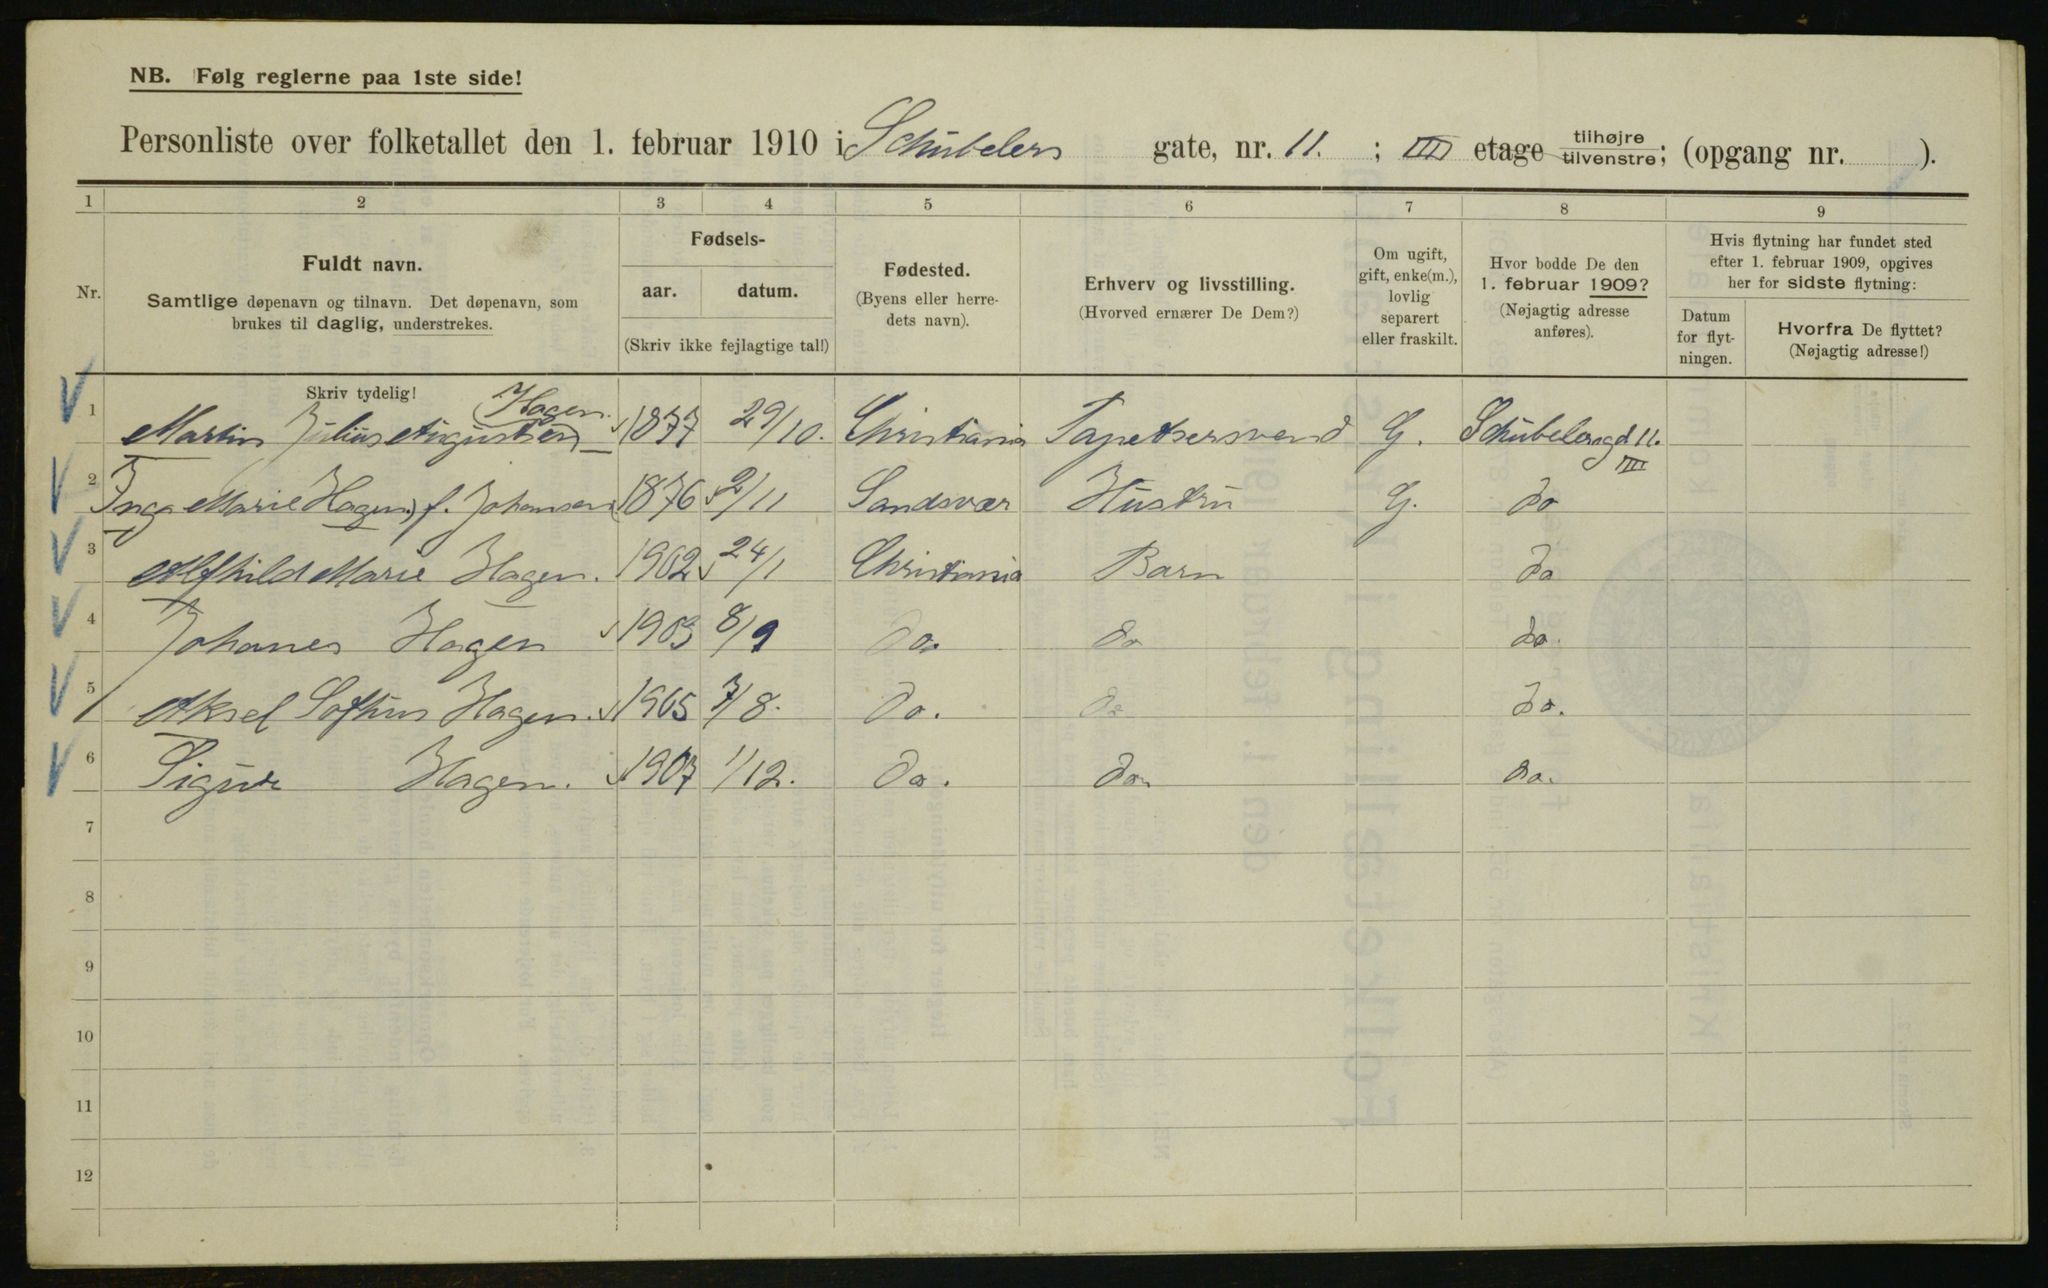 NB. Følg reglerne paa 1ste side!
Personliste over folketallet den 1. februar 1910 i Schübelers gate, nr. 11. ; III etage tilhøjre tilvenstre; (opgang nr. ).
1 2 3 4 5 6 7 8 9
Nr.
Fuldt navn.
Samtlige døpenavn og tilnavn. Det døpenavn, som
brukes til daglig, understrekes.
Fødsels-
aar. datum.
(Skriv ikke fejlagtige tal!)
Fødested.
(Byens eller herre-
dets navn).
Erhverv og livsstilling.
(Hvorved ernærer De Dem?)
Om ugift,
gift, enke(m.),
lovlig
separert
eller fraskilt.
Hvor bodde De den
1. februar 1909?
(Nøjagtig adresse
anføres).
Hvis flytning har fundet sted
efter 1. februar 1909, opgives
her for sidste flytning:
Datum
for flyt-
ningen.
Hvorfra De flyttet?
(Nøjagtig adresse!)
Skriv tydelig!
1 Martin Julius Augustsen (Hagen. 1877 29/10. Christiania Tapetsersvend G. Schübelersgd 11. III
2 Inga Marie Hagen) f. Johansen 1876 2/11 Sandsvær Hustru G. do
3 Alfhild Marie Hagen. 1902 24/1 Christiania Barn do
4 Johanes Hagen 1903 8/9 do. do do.
5 Aksel Sofhus Hagen. 1905 7/8. do. do do.
6 Sigurd Hagen. 1907 1/12. do. do. do.
7
8
9
10
11
12